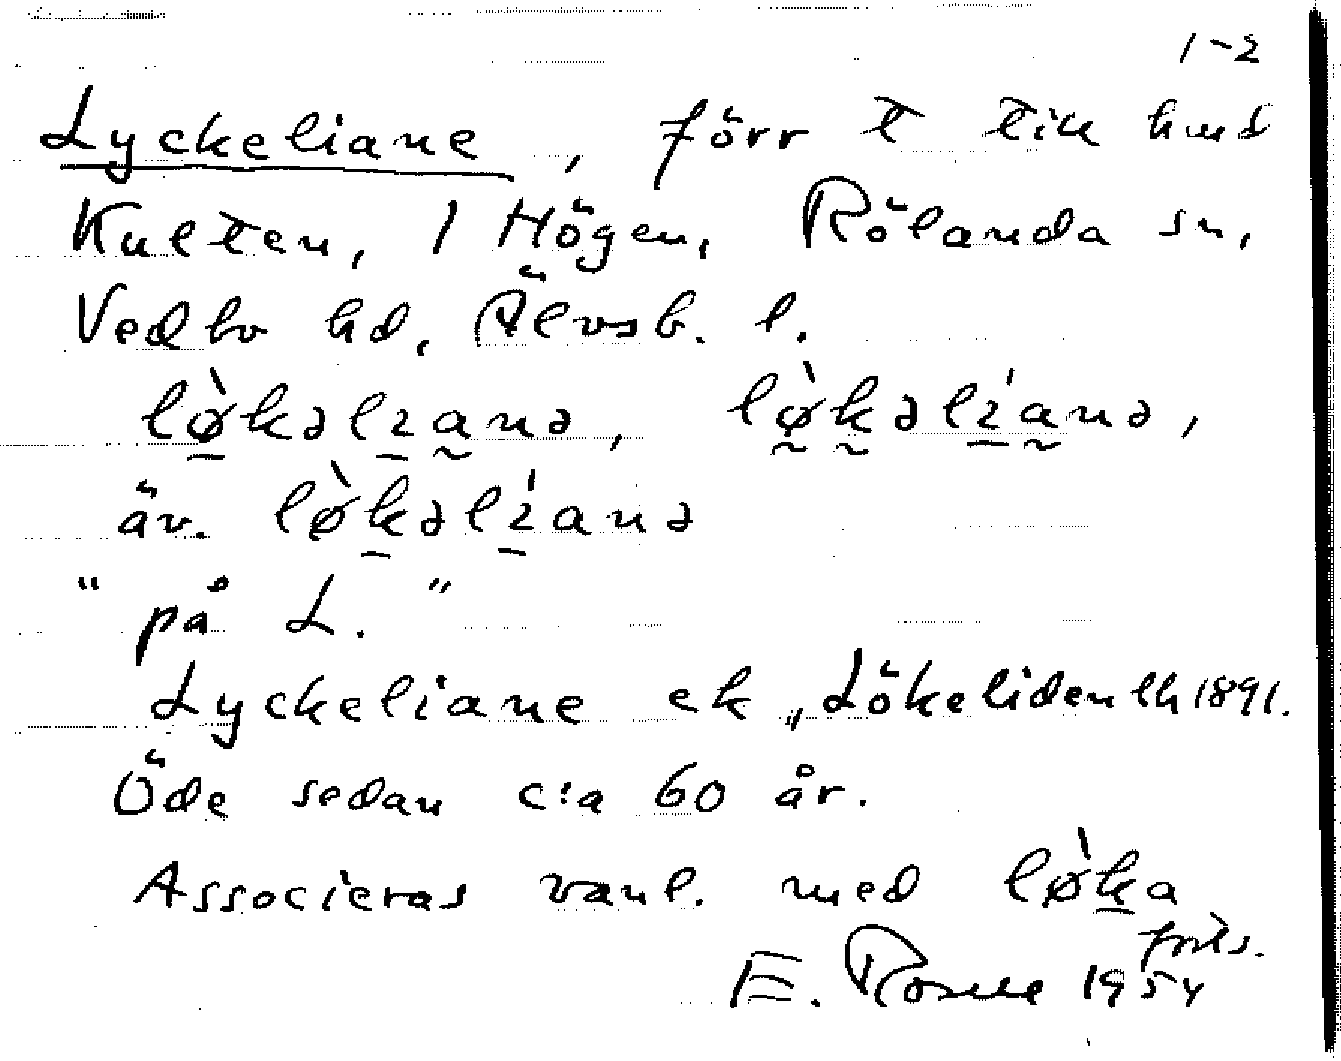 1-2
Lyckeliane, förr t till hmd
Kulten, 1 Högen, Rölanda sn,
Vedbo hd, Älvsb. l.
lø̀kəlɩanə, lø̀kəlɩ́anə,
äv. lø̀kəlɩ́anə
"på L."
Lyckeliane ek „Lökeliden lh 1891.
Öde sedan c:a 60 år.
Associeras vanl. med lø̀ka
forts.
E. Rosell 1954